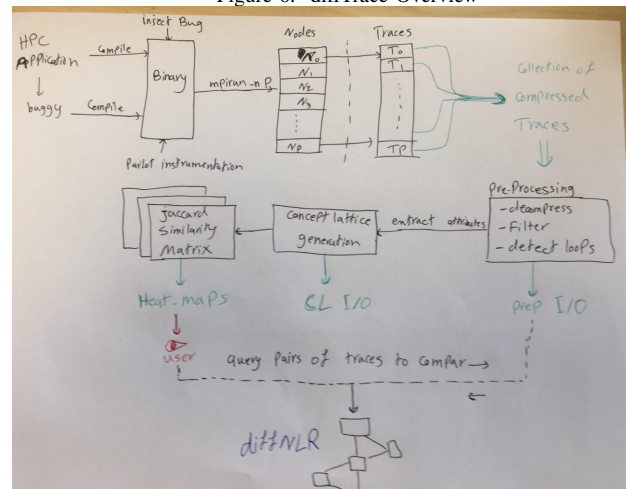 Figure 6: diffTrace Overview
HPC
Application
buggy
Compile
Compile
insect Bug
Binary
Parlot instrumentation
mpirun -n P
Nodes
N0
N1
N2
N3
NP
Traces
T0
T1
TP
Collection of
Compressed
Traces
Pre-Processing
- decompress
- Filter
- detect loops
extract attributes
Concept lattice
generation
Jaccard
Similarity
Matrix
Heat-maps
CL I/O
prep I/O
user
query pairs of traces to compar
diffNLR